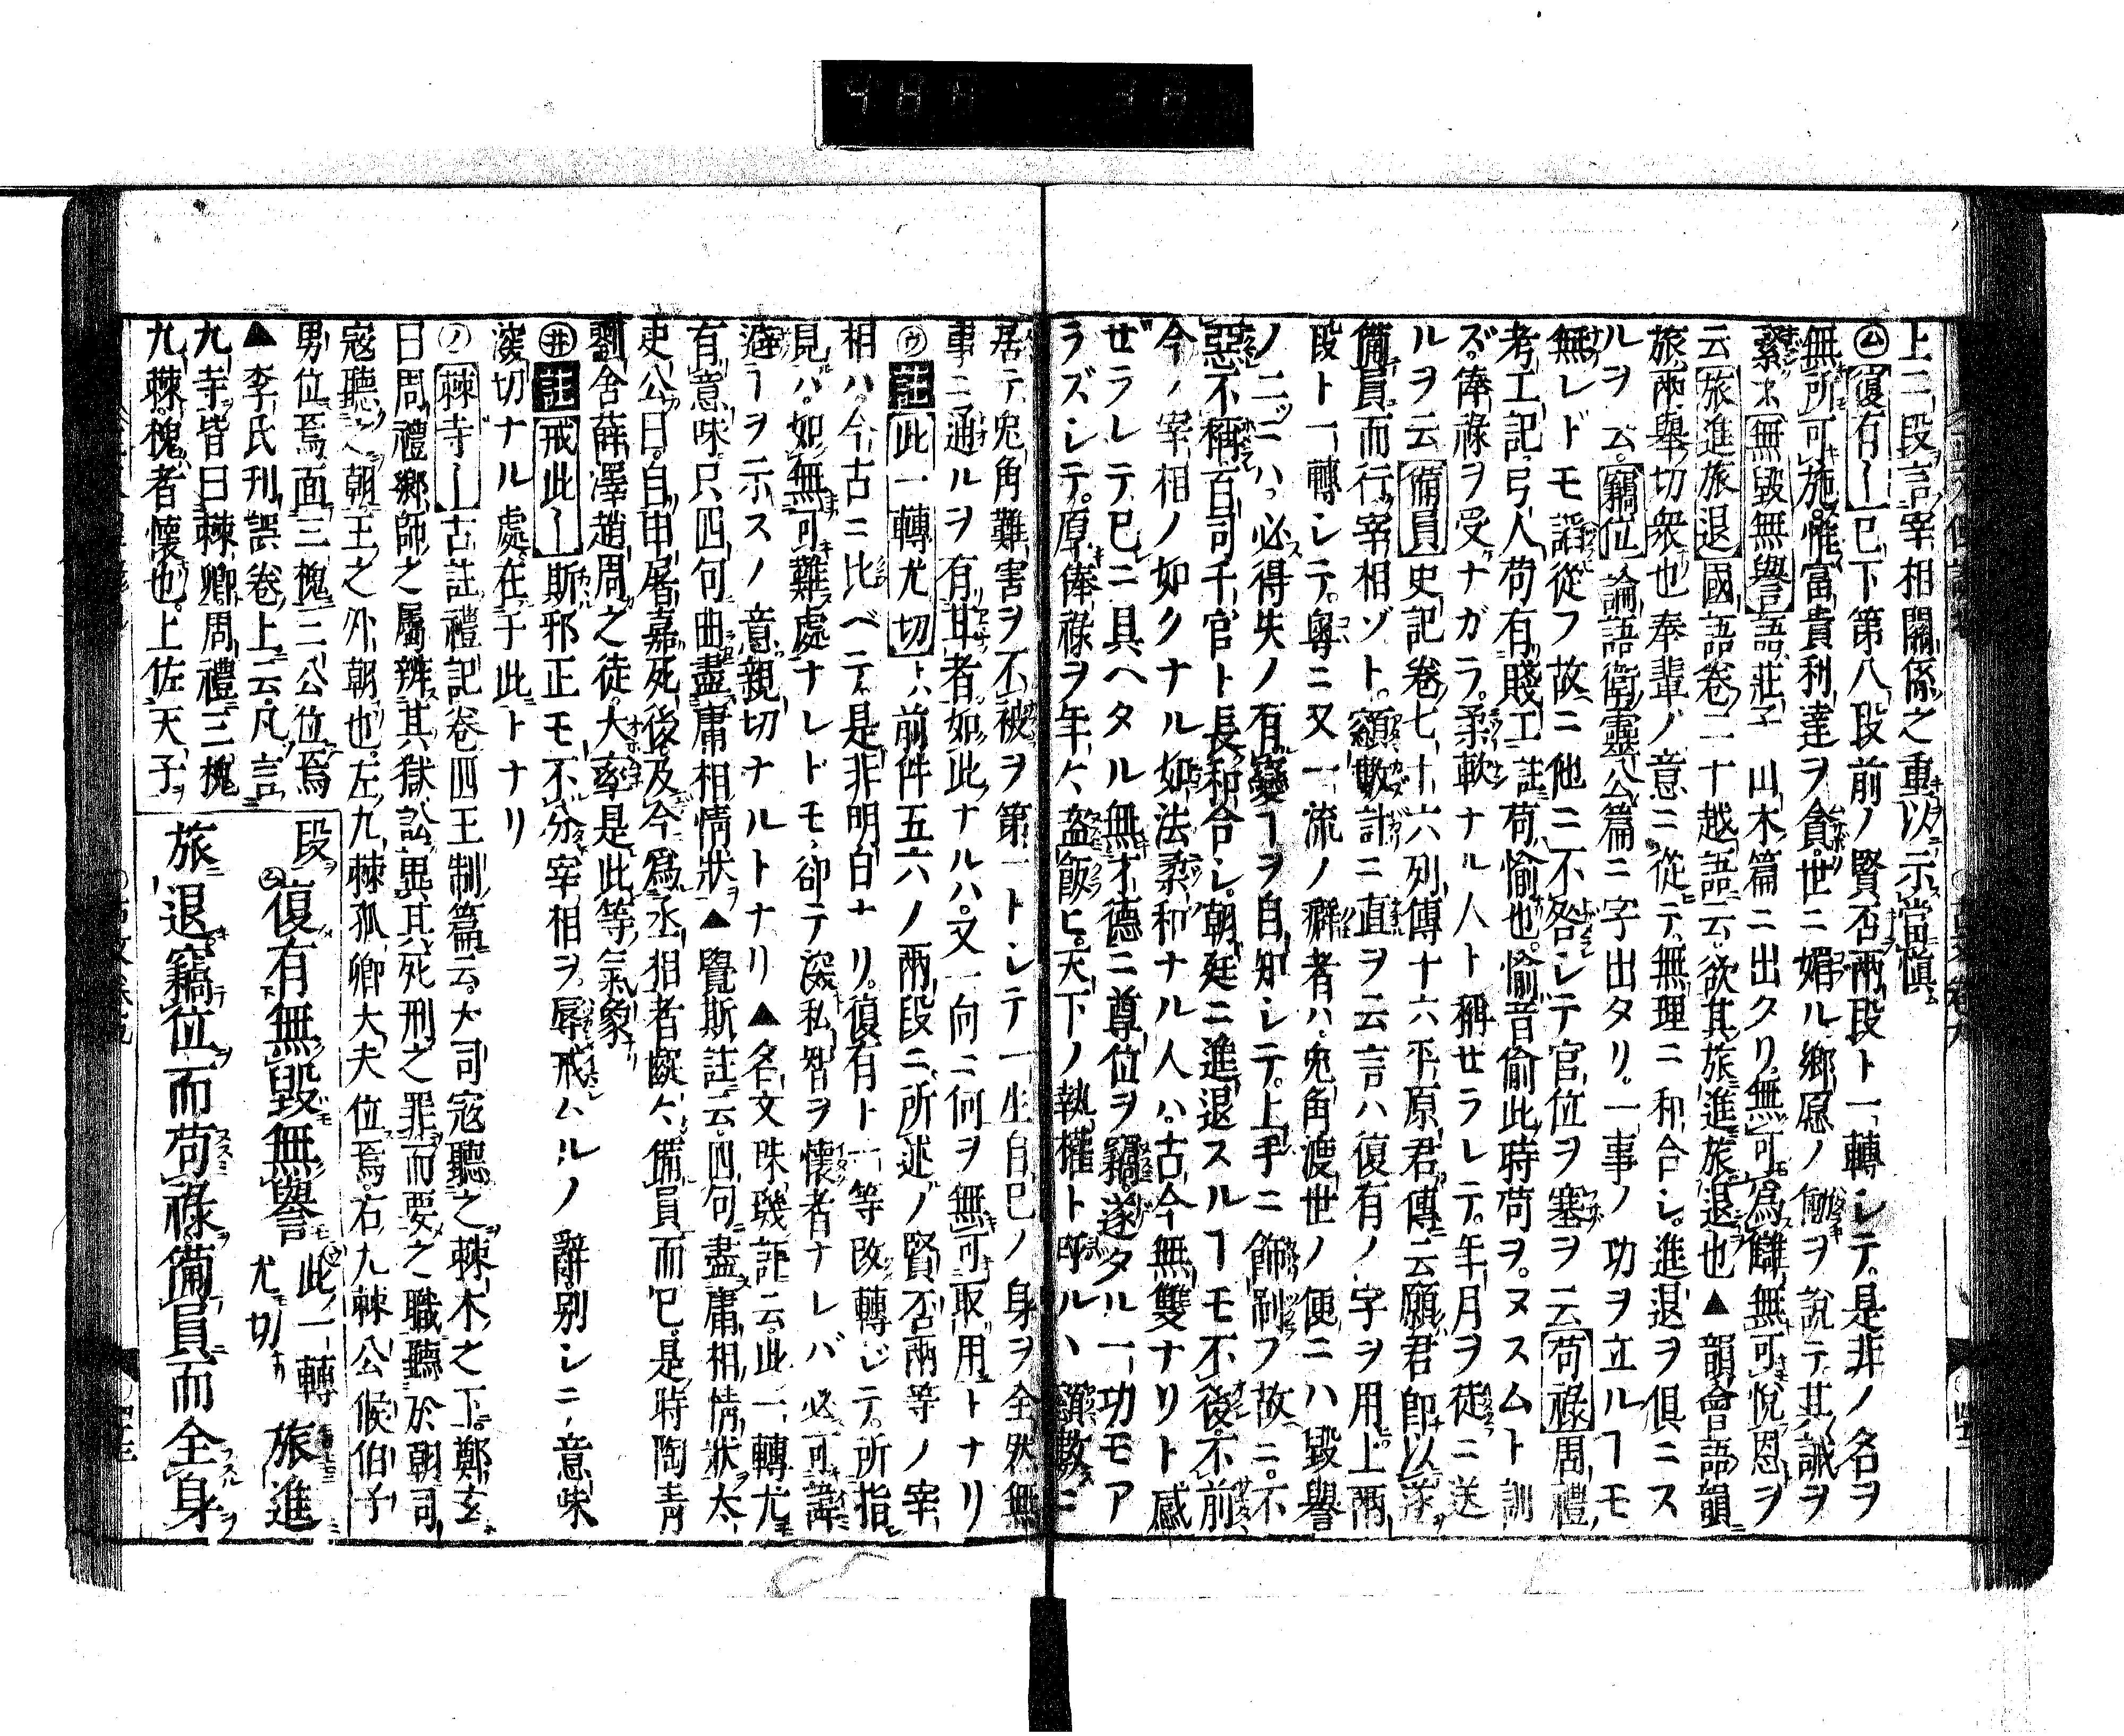 上二段言宰相關係之重以示當愼
㋰復有〡已下第八段前ノ賢否兩段ト一轉シテ是非ノ名ヲ
無所可施惟富貴利達ヲ貪世ニ媚ル鄉愿ノ ヲ說テ其誡ヲ
繫ス無毀無譽語莊子 山木篇ニ出タリ無可爲讎無可悅恩ヲ
云旅進旅退國語卷二十越語云欲其旅進旅退也▲韻會語韻
旅兩舉切衆也奉輩ノ意ニ從テ無理ニ和合シ進退ヲ俱ニス
ルヲ云竊位論語衛靈公篇ニ字出タリ一事ノ功ヲ立ルヿモ
無レドモ諂從フ故ニ他ニ不咎シテ官位ヲ塞ヲ云苟祿周禮
考工記弓人苟有賤工註苟愉也愉音偷此時苟ヲヌスムト訓
ズ俸祿ヲ受ナガラ柔軟ナル人ト稱セラレテ年月ヲ徒ニ送
ルヲ云備員史記卷七十六列傳十六平原君傳云願君卽以遂
備員而行宰相ゾト額數計ニ直ヲ云言ハ復有ノ字ヲ用上兩
段ト一轉シテ粤ニ又一流ノ癖者ハ兎角渡世ノ便ニハ毀譽
ノ二ツニハ必得失ノ有變ヿヲ自知シテ上手ニ飾 フ故ニ不
惡不稱百司千官ト長和合シ朝廷ニ進退スルヿモ不後不前
今ノ宰相ノ如クナル如法柔和ナル人ハ古今無雙ナリト感
ゼラレテ已ニ具ヘタル無才德ニ尊位ヲ竊遂タル一功モア
ラズシテ原俸祿ヲ年々盜飯ヒ天下ノ執權ト呼ルハ額數ニ
居テ兎角難害ヲ不被ヲ第一トシテ一生自己ノ身ヲ全然無
事ニ通ルヲ有耳者如此ナルハ又一向ニ何ヲ無可取用トナリ
㋒註此一轉尤切トハ前件五六ノ兩段ニ所述ノ賢否兩等ノ宰
相ハ今古ニ比ベテ是非明白ナリ復有ト一等改轉ジテ所指
見ハ如無可難處ナレドモ卻テ深私智ヲ懷者ナレバ必可諱
避ヿヲ示スノ意親切ナルトナリ▲名文珠璣評云此一轉尤
有意味只四句曲盡庸相情狀▲覺斯註云四句盡庸相情狀太
史公曰自申屠嘉死後及今爲丞相者齪々備員而已是時陶靑
劉舍薛澤趙周之徒大率是此等氣象
㋼註戒此〡斯邪正モ不分宰相ヲ辱戒ムルノ辭別シニ意味
深切ナル處在于此トナリ
㋨棘寺〡古註禮記卷四王制篇云大司寇聽之棘木之下鄭玄
曰周禮鄉師之屬辨其獄訟異其死刑之罪而要之職聽於朝司
寇聽之朝王之外朝也左九棘孤卿大夫位焉右九棘公候伯子
男位焉面三槐三公位焉
▲李氏刊誤卷上云凡言
九寺皆曰棘卿周禮三槐
九棘槐者懷也上佐天子
段㋰復有無毀無譽㋒此一轉尤切旅進
旅退竊位而苟祿備員而全身